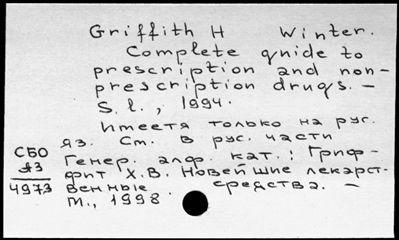 Griffith H Winter.
Complete gnide to
prescription and non-
prescription drugs. -
S. l., 1994.
Имеетя только на рус.
яз. См. в рус. части
Генер. алф. кат.: Гриф-
фит Х.В. Новейшие лекарст-
венные средства. -
М., 1998.
СБО
ЯЗ
4973